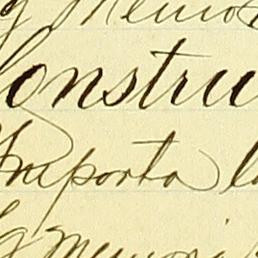 y Memor
Constru
Importa l
y Memori